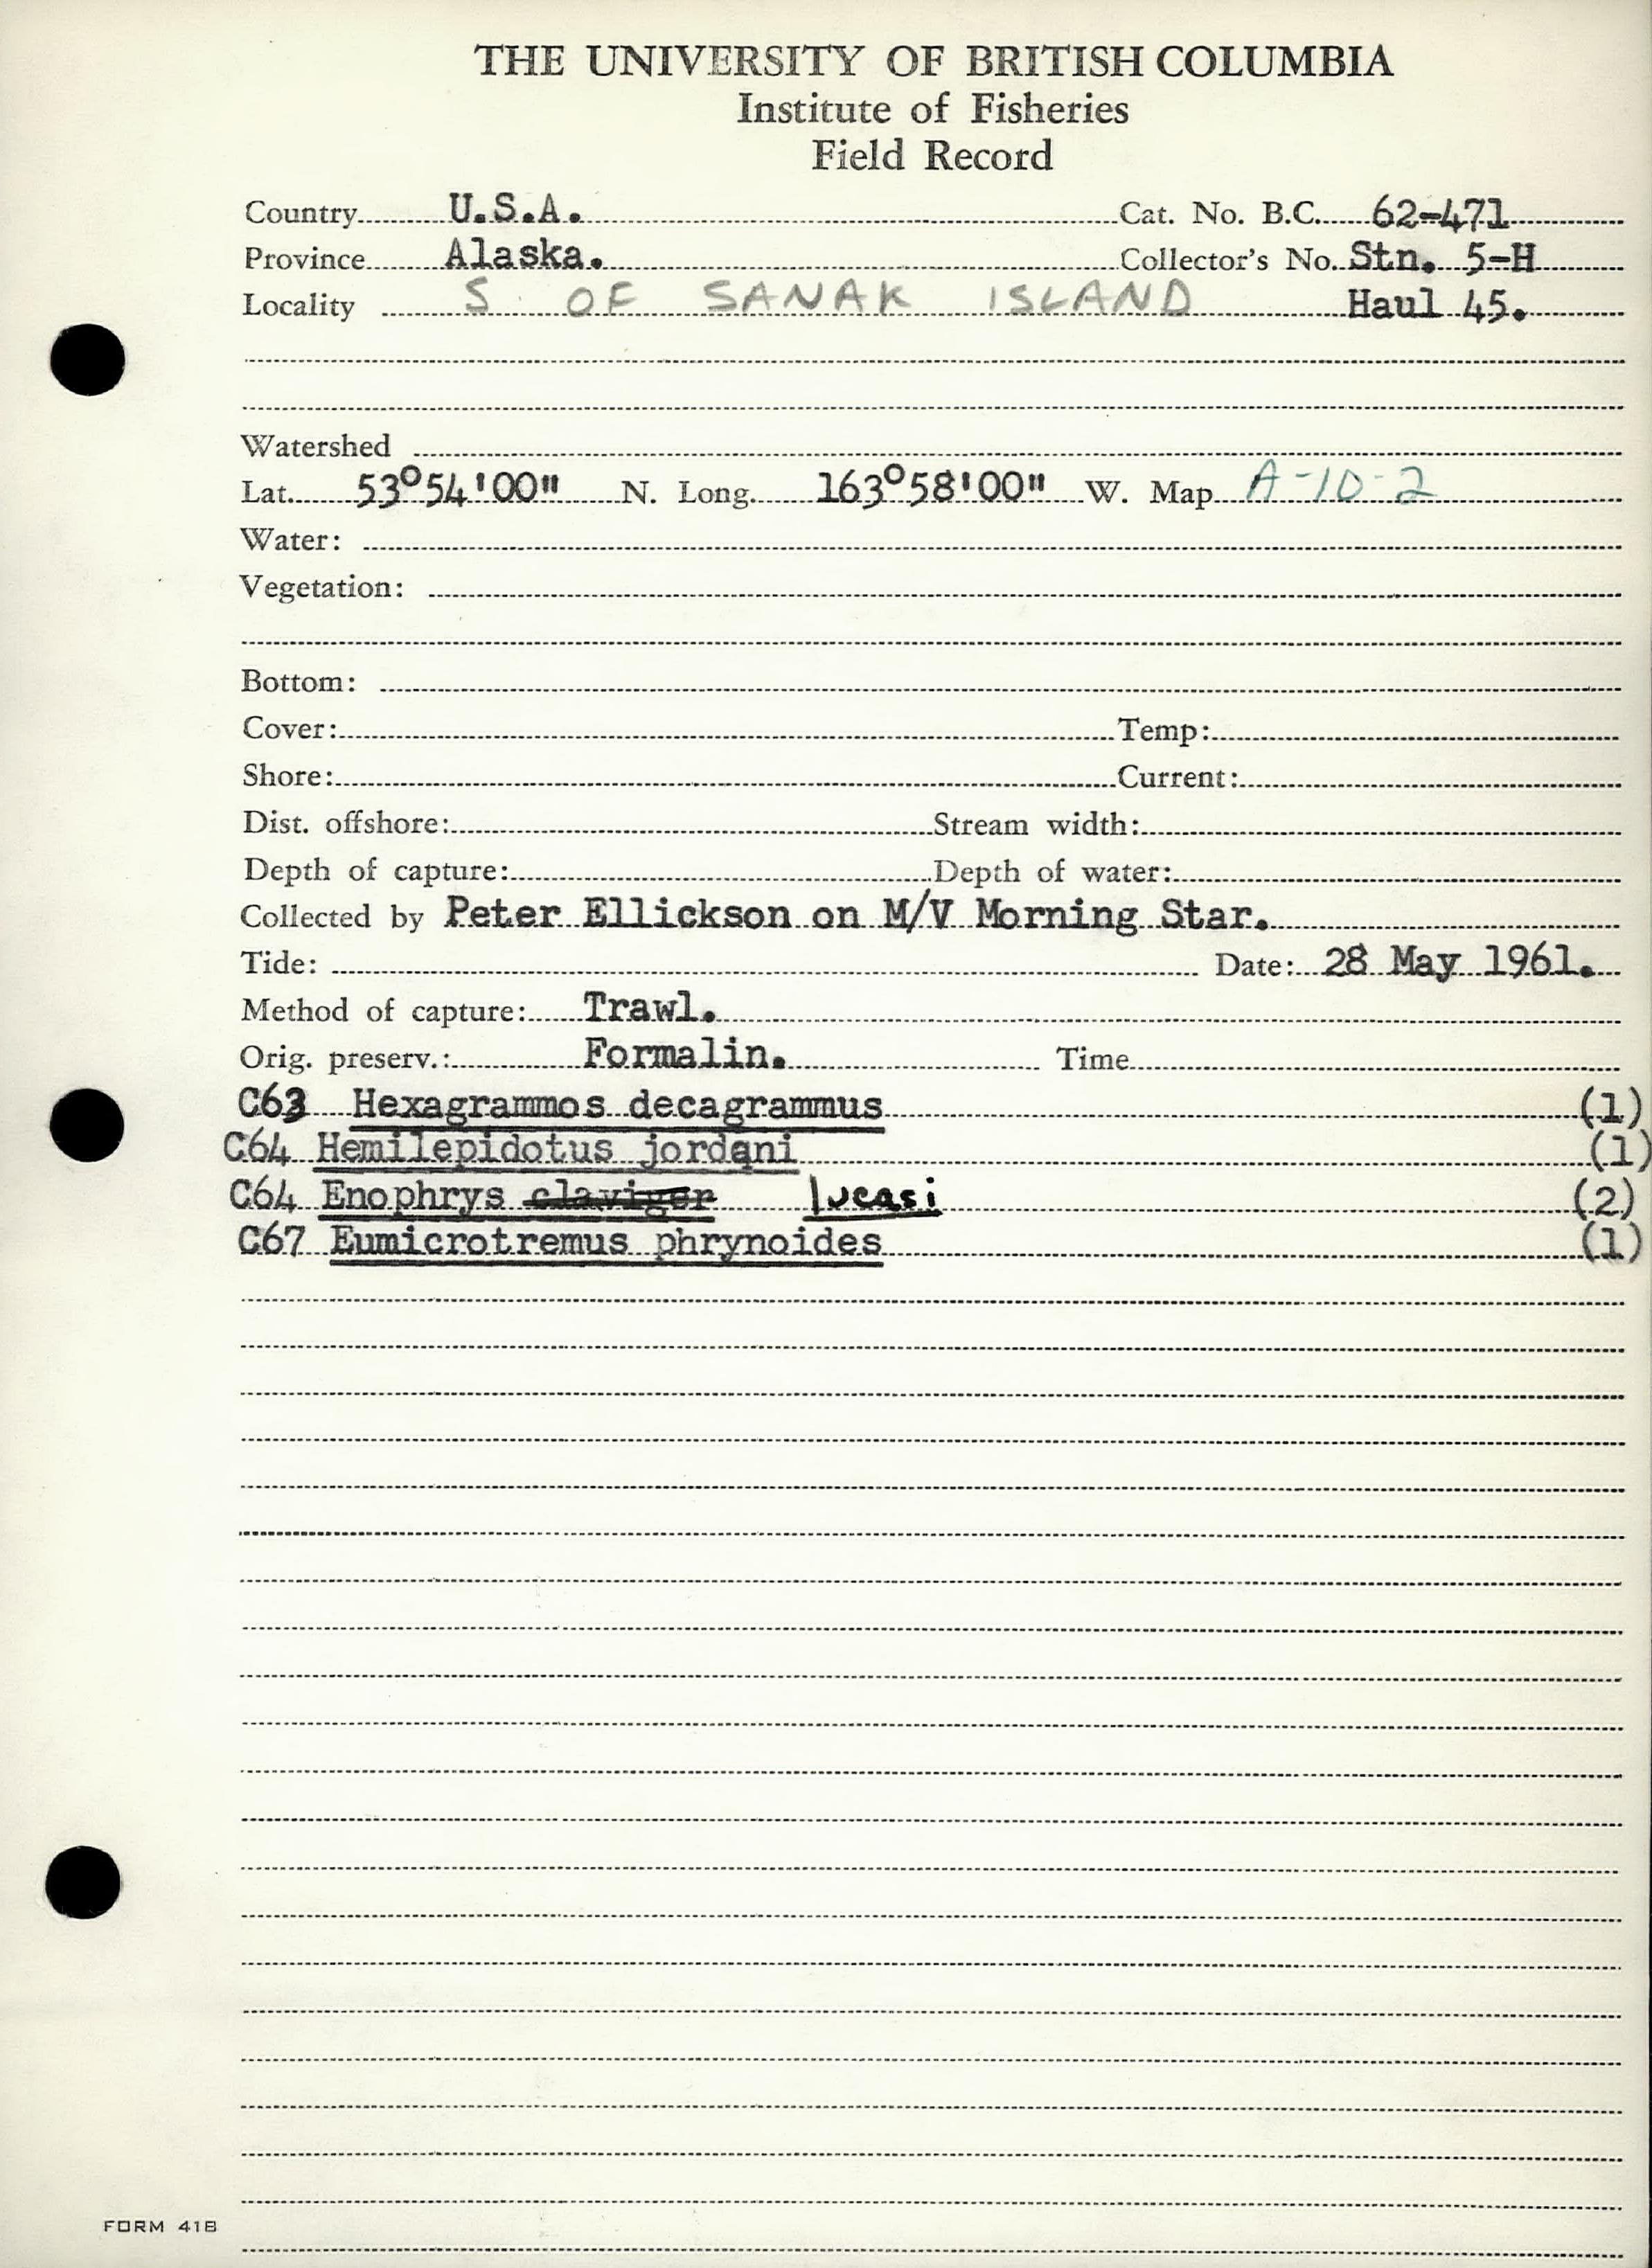 THE UNIVERSITY OF BRITISH COLUMBIA
Institute of Fisheries
Field Record
Country U.S.A. Cat. No. B.C. 62-471
Province Alaska. Collector's No. Stn. 5-H
Locality S. OF SANAK ISLAND Haul 45.
Watershed
Lat. 53°54'00" N. Long. 163°58'00" W. Map A-10-2
Water:
Vegetation:
Bottom:
Cover: Temp:
Shore: Current:
Dist. offshore: Stream width:
Depth of capture: Depth of water:
Collected by Peter Ellickson on M/V Morning Star.
Tide: Date: 28 May 1961.
Method of capture: Trawl.
Orig. preserv.: Formalin. Time
C63 Hexagrammos decagrammus (1)
C64 Hemilepidotus jordani (1)
C64 Enophrys claviger lucasi (2)
C67 Eumicrotremus phrynoides (1)
FORM 41B